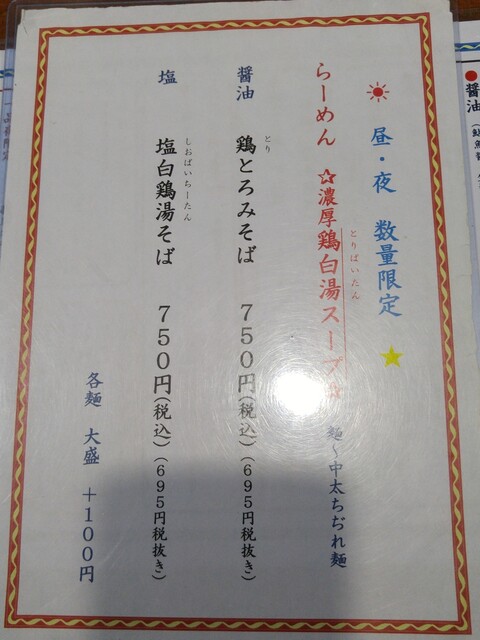 昼・夜 数量限定
らーめん ☆濃厚鶏白湯スープ☆ 麺〜中太ちぢれ麺
とりぱいたん
醤油 鶏とろみそば 750円(税込)(695円税抜き)
とり
塩 塩白鶏湯そば 750円(税込)(695円税抜き)
しおぱいちーたん
各麺 大盛 +100円
醤油